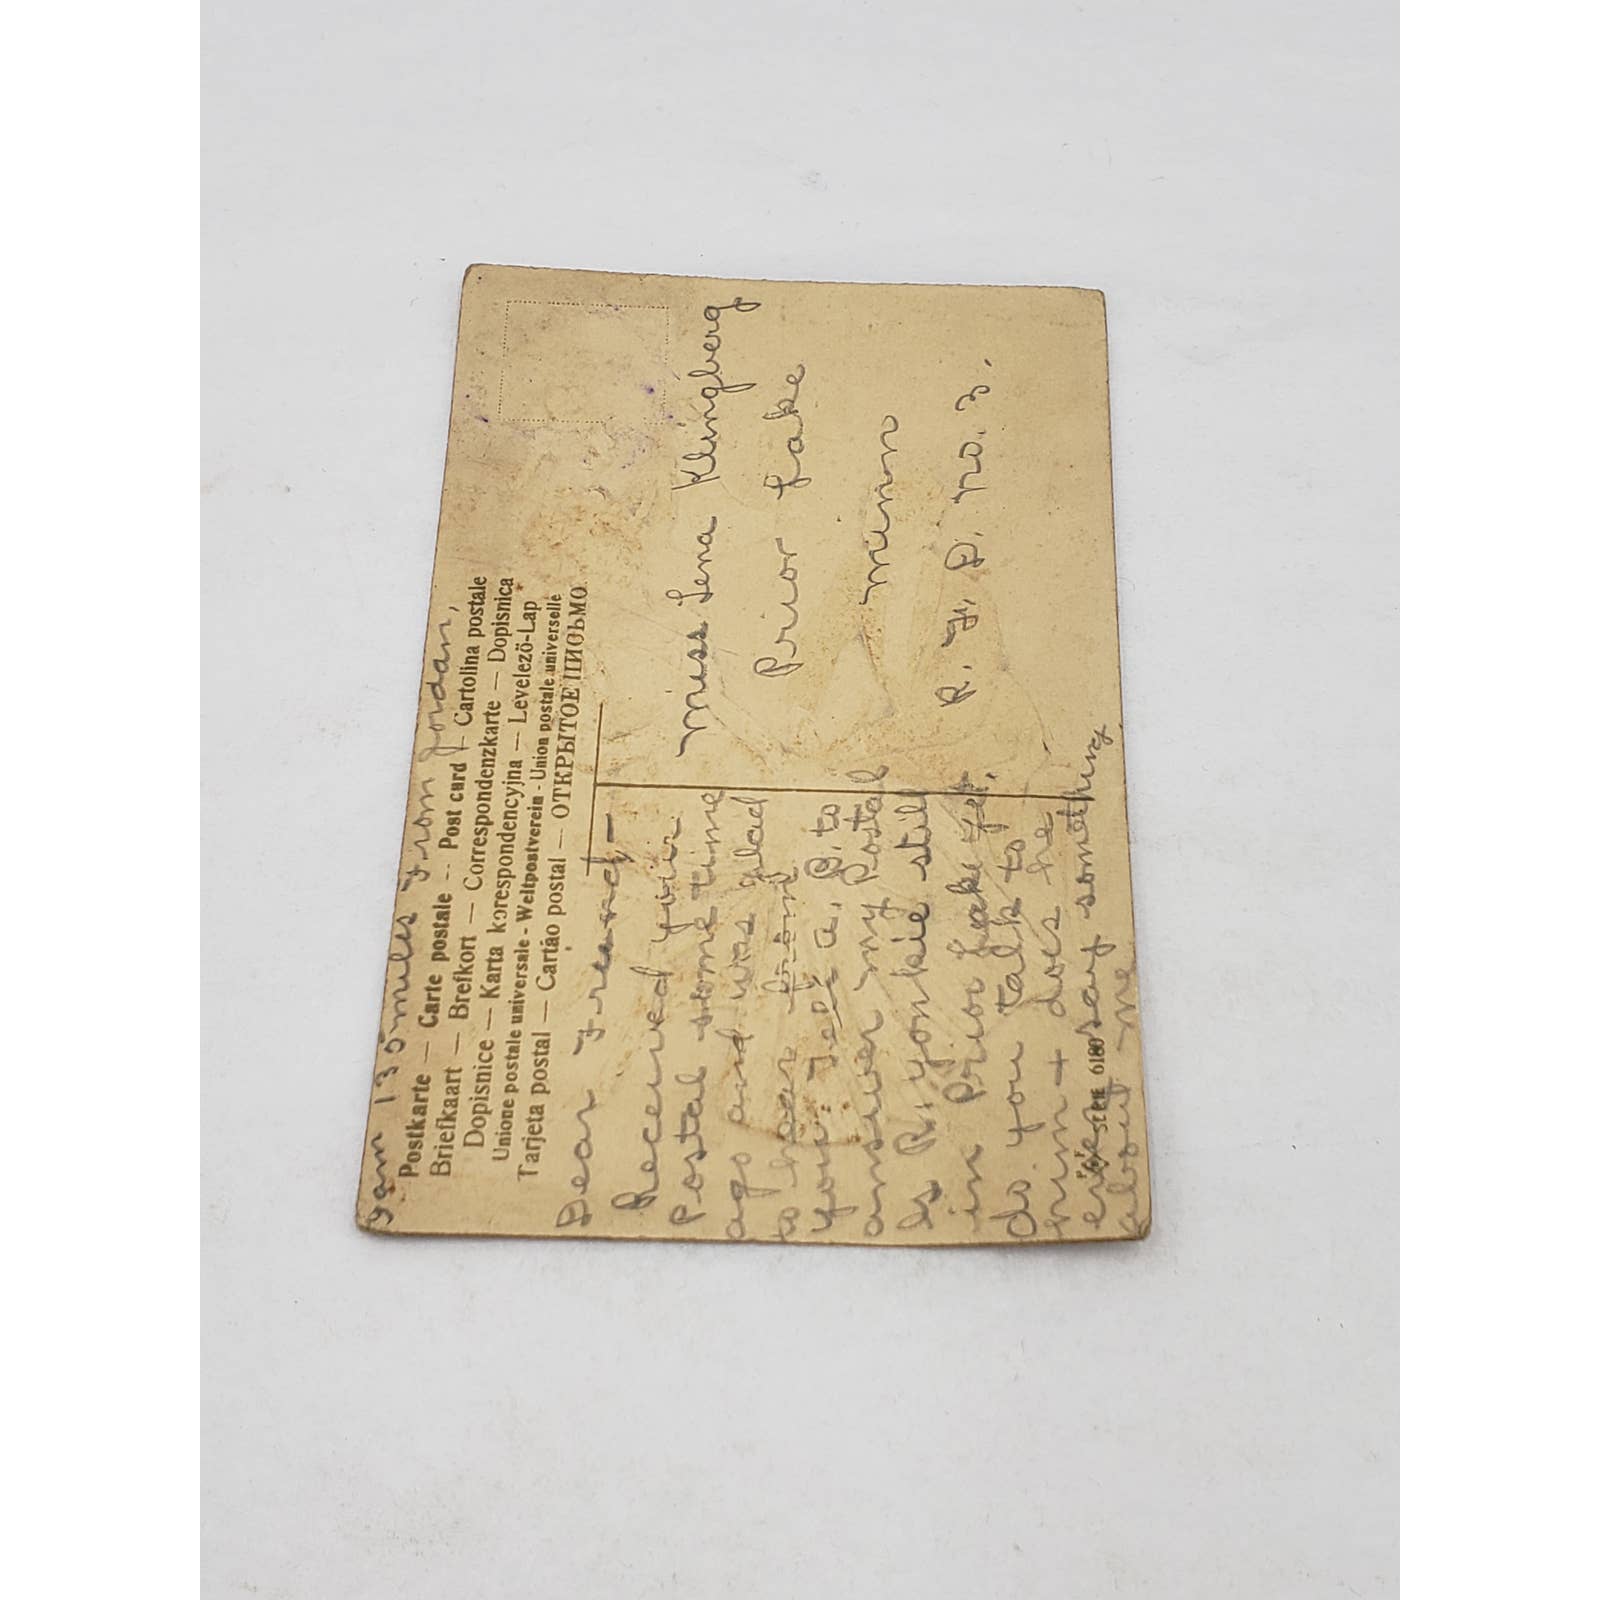 I am 13 5 miles from Jordan,
Postkarte — Carte postale -- Post card — Cartolina postale
Briefkaart — Brefkort — Correspondenzkarte — Dopisnica
Dopisnice — Karta korespondencyjna — Levelező-Lap
Unione postale universale - Weltpostverein - Union postale universelle
Tarjeta postal — Cartão postal — ОТКРЫТОЕ ПИСЬМО
Dear Friend—
Received your
Postal some time
ago and was glad
to hear from
you. Tell a. B. to
answer my Postal
Is R. yonkie still
in Prior Lake yet.
do you talk to
him + does he
ever say something
about me
P.F.
SERIE 6180
Miss Lena Klingberg
Prior Lake
Minn
R. F. D. No. 3.